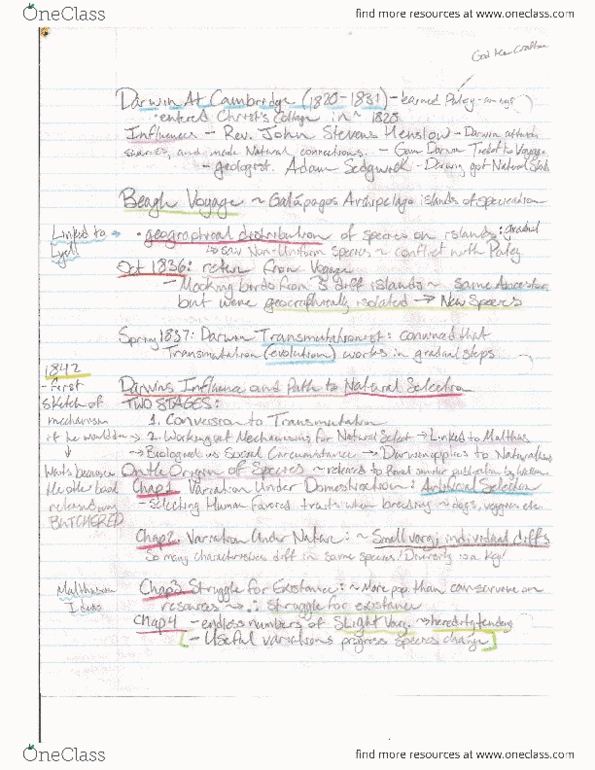 OneClass
find more resources at www.oneclass.com
God the
Darwin At Cambridge (1820-1831) - learned Paley
· entered Christ's College in ~ 1820
Influences - Rev. John Stevens Henslow - Darwin attends
and made Natural connections. - Gave Darwin Ticket to Voyage
- geologist Adam Sedgwick - Darwin got Natural
Beagle Voyage ~ Galápagos Archipelago islands of speciation
Linked to → · geographical distribution of species on islands: gradual
Lyell
↳ Saw Non-Uniform Species ~ conflict with Paley
Oct 1836: return from Voyage
- Mocking birds from 3 diff islands ~ same Ancestor,
but were geographically isolated → New Species
Spring 1837: Darwin Transmutationist: convinced that
Transmutation (evolution) works in gradual steps
1842
- First
sketch of
mechanism
Darwins Influence and Path to Natural Selection
TWO STAGES:
1. Conversion to Transmutation
2. Working out Mechanisms for Natural Select → Linked to Malthus
→ Biological vs Social Circumstance → Darwin applies to Naturalism
Waits because
the other book
released was
BUTCHERED
On the Origin of Species ~ released to similar publication by
Chap1 Variation Under Domestication: Artificial Selection
- Selecting Human favored traits when breeding ~ dogs, etc
Chap2. Variation Under Nature: ~ Small individual diffs
So many characteristics diff in same species! Diversity is a Key!
Malthusian
Ideas
Chap3 Struggle for Existance: ~ More pop than can survive on
resources → ∴ struggle for existance
Chap4 - endless numbers of SLight → heredity tendency
[- Useful variations progress species change]
OneClass
find more resources at www.oneclass.com